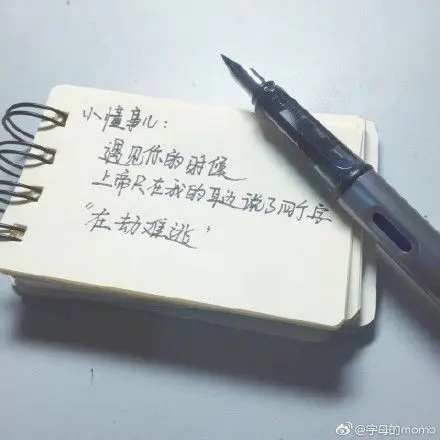 小懂事儿：
遇见你的时候
上帝只在我的耳边说了两个字
“在劫难逃”
@字母的momo